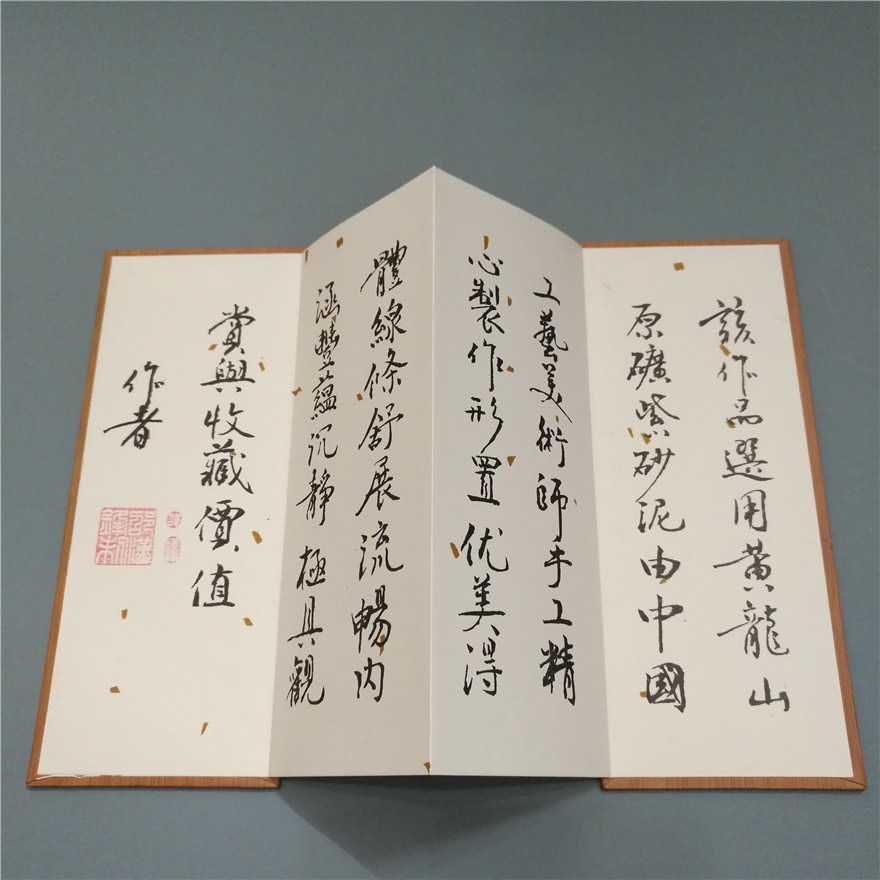 該作品選用黄龍山
原礦紫砂泥由中國
工藝美術師手工精
心製作形置优美得
體線條舒展流暢内
涵豐蘊沉静極具觀
賞與收藏價值
作者